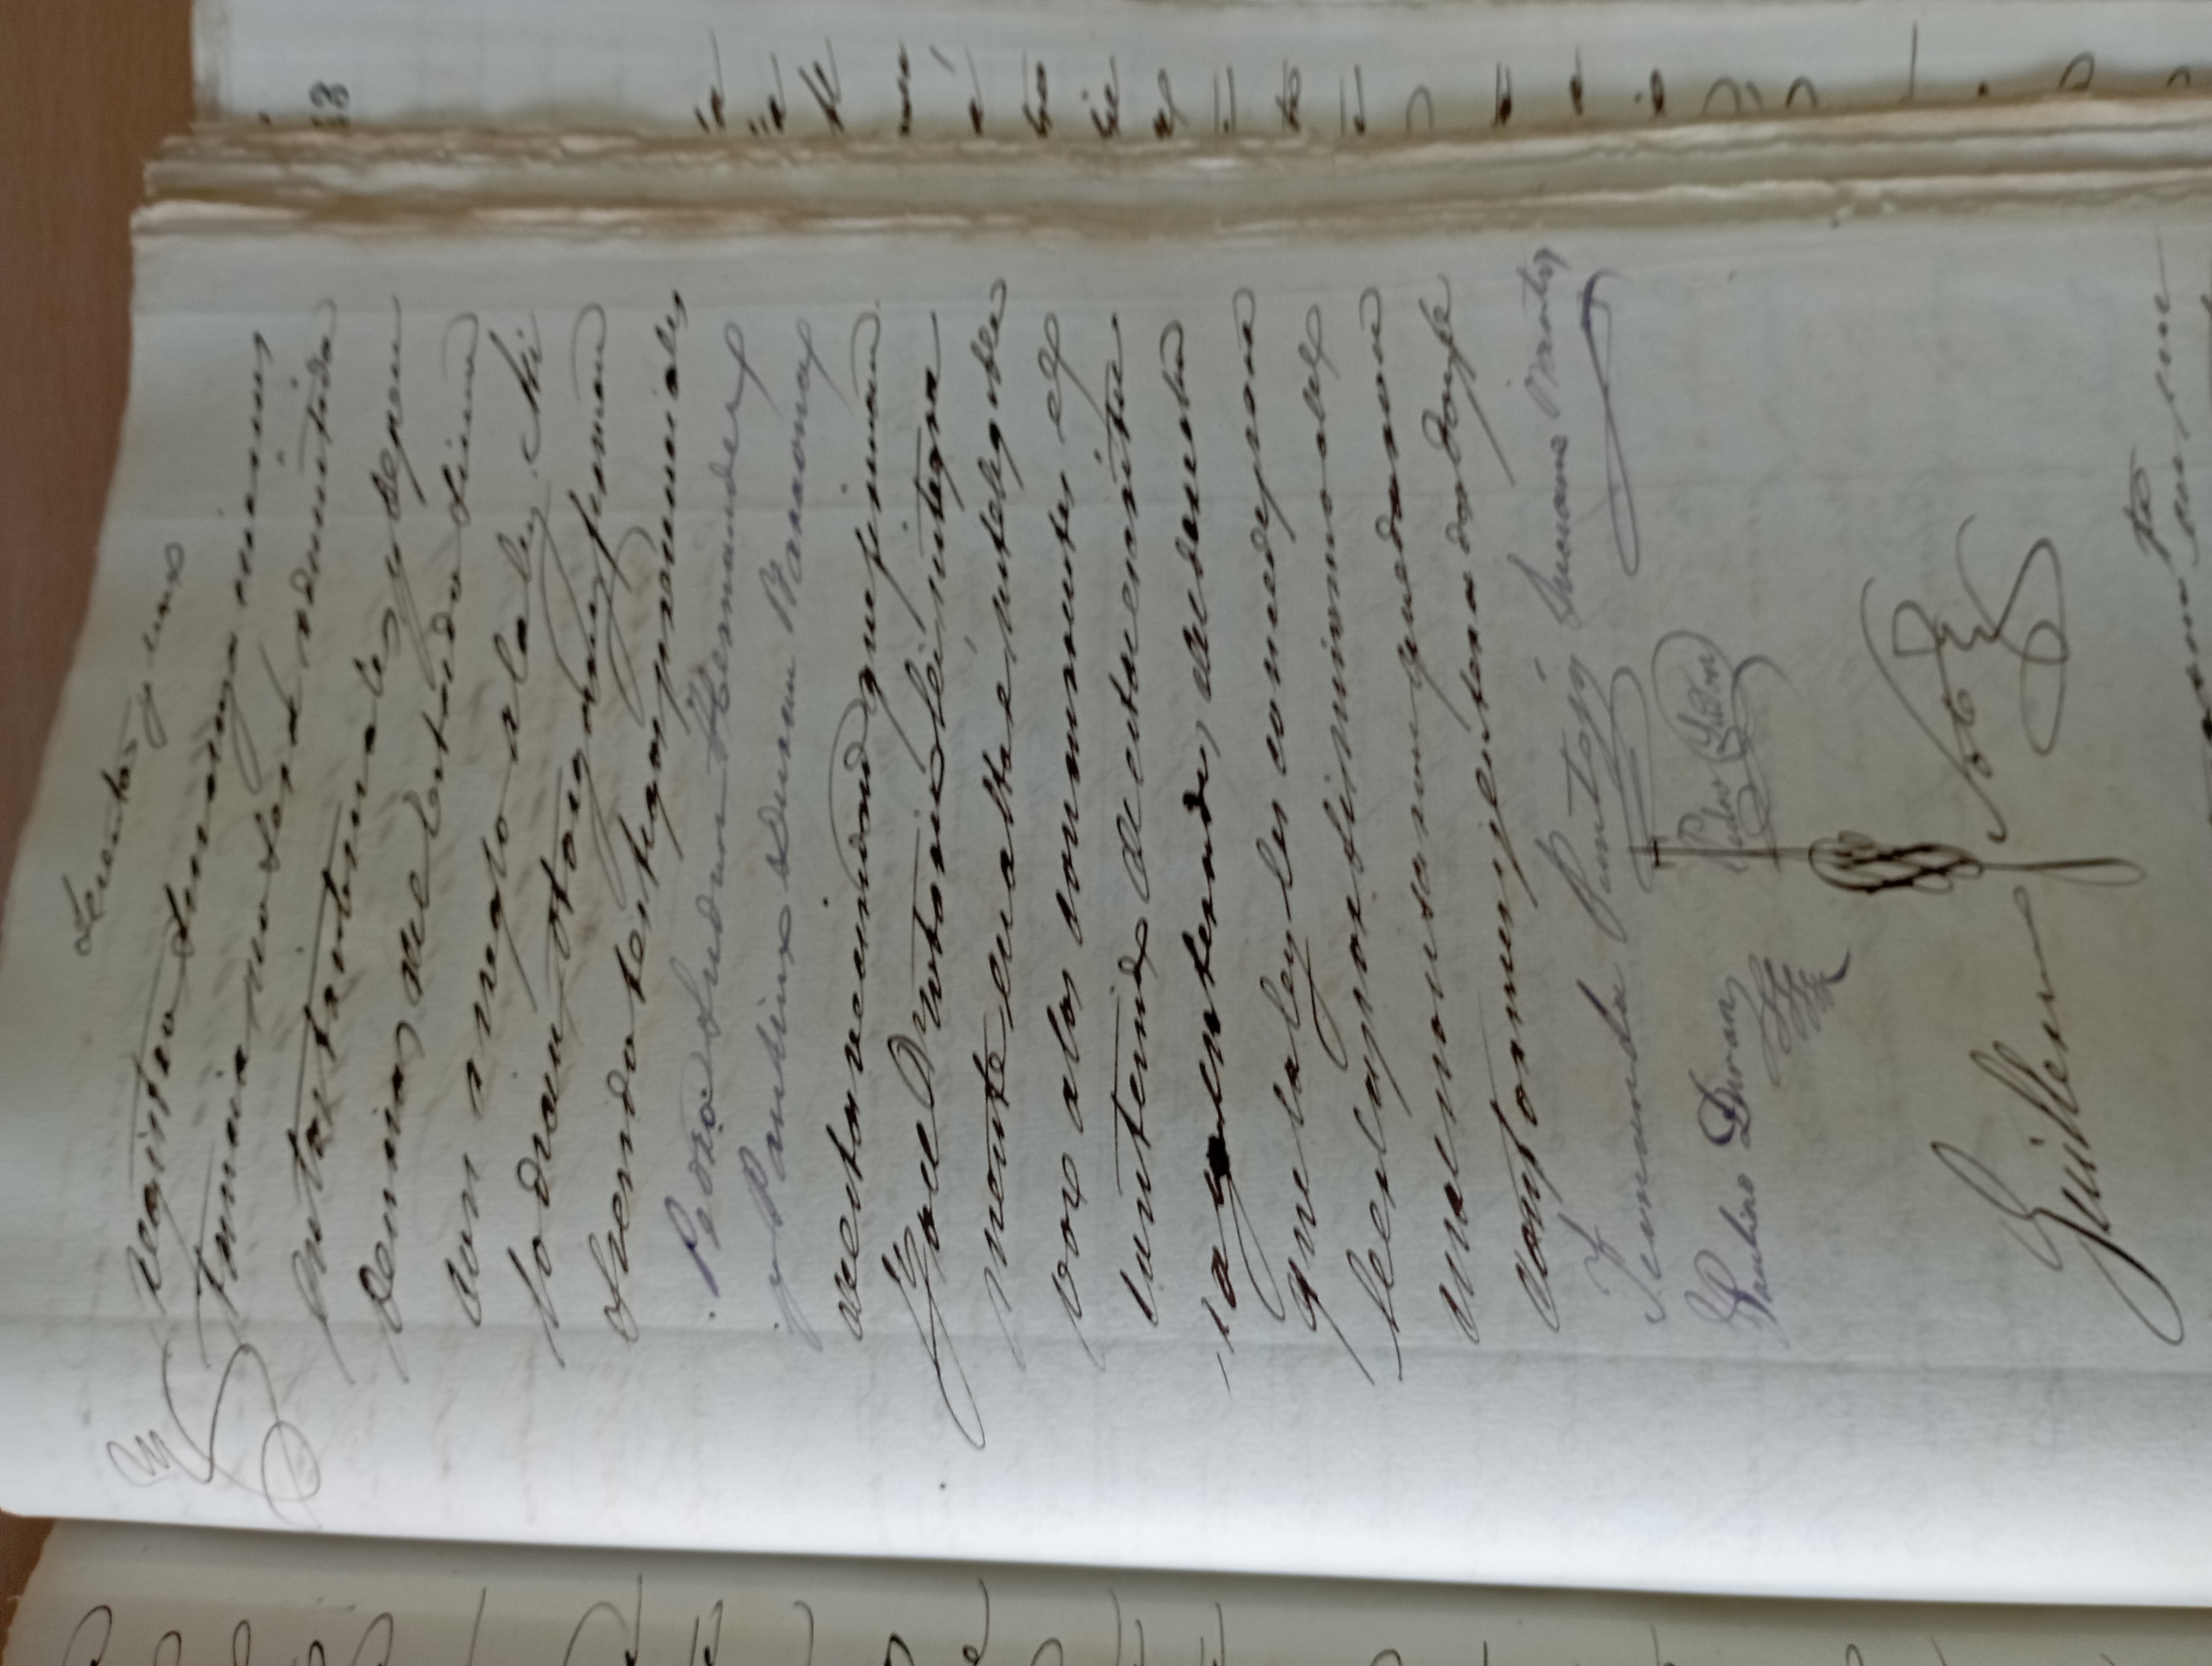 Sesenta y uno
registro sin cuyo circuns
tancia no será admitida
en los tribunales y depen
dencias del Estado sino
con arreglo a la ley. Asi
lo dicen otorgan y firman
siendo testigos presenciales
Pedro Ludon Hernandez
y Paulino Duran Barrona
de esta vecindad que firman.
Yo el Notario leí integra
mente en alta é inteligible
voz a los concurrentes el
contenido de esta escritu
ra y enterados del derecho
que la ley les concede para
leerla por si mismos del
cual no usaron quedaron
conformes y enterados doy fe
Fernando Pantoja Luciano Santos
Paulino Duran Pedro Ludon
Guillermo Soto